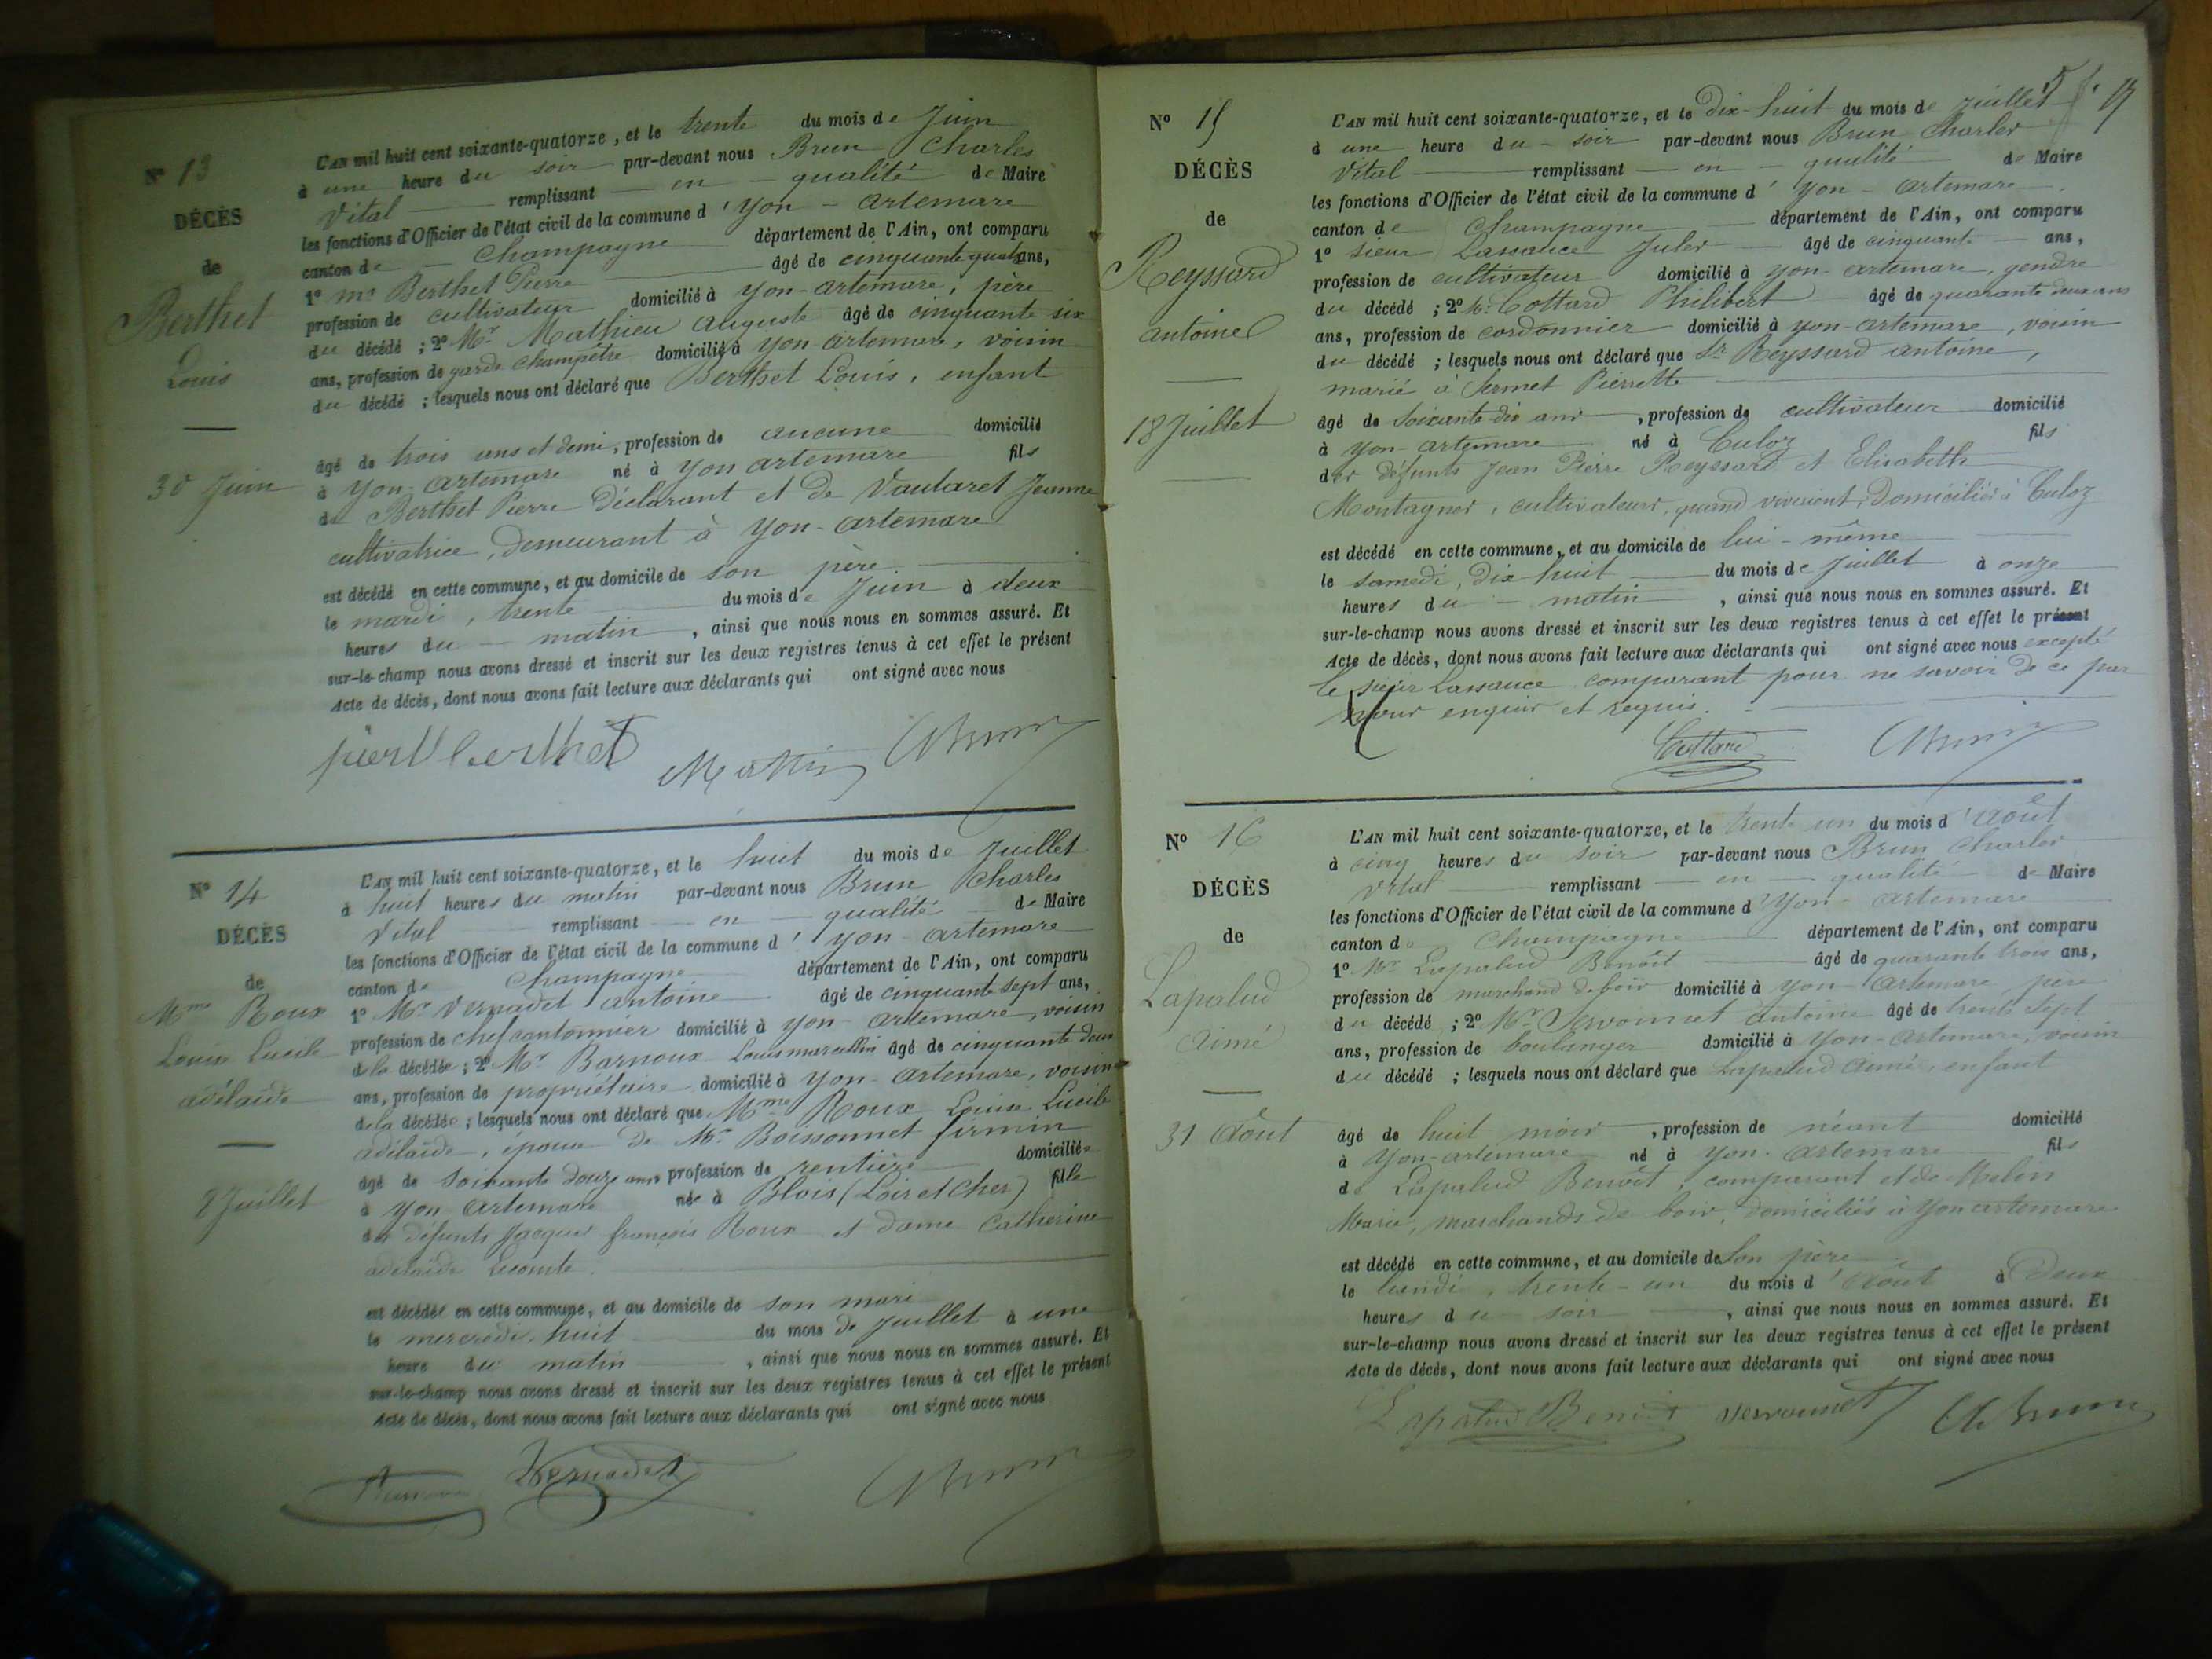 N° 13
DÉCÈS
de
Berthet
Louis
30 Juin
L'AN mil huit cent soixante-quatorze, et le trente du mois de Juin
à une heure du soir par-devant nous Brun Charles
Vital remplissant en qualité de Maire
les fonctions d'Officier de l'état civil de la commune d'Yon-Artemare
canton de Champagne département de l'Ain, ont comparu
1° Mr Berthet Pierre âgé de cinquante quatre ans,
profession de cultivateur domicilié à Yon-Artemare, père
du décédé ; 2° Mr Mathieu Auguste âgé de cinquante six
ans, profession de garde champêtre domicilié à Yon-Artemare, voisin
du décédé ; lesquels nous ont déclaré que Berthet Louis, enfant
âgé de trois ans et demi, profession de aucune domicilié
à Yon-Artemare né à Yon Artemare fils
de Berthet Pierre Déclarant et de Vautaret Jeanne
cultivatrice, demeurant à Yon-Artemare
est décédé en cette commune, et au domicile de son père
le mardi, trente du mois de Juin à deux
heures du matin, ainsi que nous nous en sommes assuré. Et
sur-le-champ nous avons dressé et inscrit sur les deux registres tenus à cet effet le présent
Acte de décès, dont nous avons fait lecture aux déclarants qui ont signé avec nous
N° 14
DÉCÈS
de
Mme Roux
Louise Lucile
adélaïde
8 Juillet
L'AN mil huit cent soixante-quatorze, et le huit du mois de Juillet
à huit heures du matin par-devant nous Brun Charles
Vital remplissant en qualité de Maire
les fonctions d'Officier de l'état civil de la commune d'Yon-Artemare
canton de Champagne département de l'Ain, ont comparu
1° Mr Vernadet Antoine âgé de cinquante sept ans,
profession de chef cantonnier domicilié à Yon-Artemare, voisin
de la décédée ; 2° Mr Barnoux Louis marcellin âgé de cinquante deux
ans, profession de propriétaire domicilié à Yon-Artemare, voisin
de la décédée ; lesquels nous ont déclaré que Mme Roux Louise Lucile
adélaïde, épouse de Mr Boissonnet firmin
âgé de soixante douze ans profession de rentière domiciliée
à Yon Artemare née à Blois (Loir et Cher) fille
des défunts Jacques françois Roux et dame Catherine
adélaïde Lecomte.
est décédée en cette commune, et au domicile de son mari
le mercredi, huit du mois de Juillet à une
heure du matin, ainsi que nous nous en sommes assuré. Et
sur-le-champ nous avons dressé et inscrit sur les deux registres tenus à cet effet le présent
Acte de décès, dont nous avons fait lecture aux déclarants qui ont signé avec nous
Vernadet
N° 15
DÉCÈS
de
Reyssard
antoine
18 Juillet
L'AN mil huit cent soixante-quatorze, et le Dix-huit du mois de Juillet
à une heure du soir par-devant nous Brun Charles
Vital remplissant en qualité de Maire
les fonctions d'Officier de l'état civil de la commune d'Yon-Artemare
canton de Champagne département de l'Ain, ont comparu
1° Sieur Lassauce Jules âgé de cinquante ans,
profession de cultivateur domicilié à Yon-Artemare, gendre
du décédé ; 2° Mr Cottard Philibert âgé de quarante deux ans
ans, profession de cordonnier domicilié à Yon-Artemare, voisin
du décédé ; lesquels nous ont déclaré que Sr Reyssard antoine,
marié à Sermet Pierrette
âgé de Soixante-dix ans, profession de cultivateur domicilié
à Yon-Artemare né à Culoz fils
des défunts Jean Pierre Reyssard et Elisabeth
Montagner, cultivateurs, quand vivaient, Domiciliés à Culoz
est décédé en cette commune, et au domicile de lui-même
le samedi, dix-huit du mois de Juillet à onze
heures du matin, ainsi que nous nous en sommes assuré. Et
sur-le-champ nous avons dressé et inscrit sur les deux registres tenus à cet effet le présent
Acte de décès, dont nous avons fait lecture aux déclarants qui ont signé avec nous excepté
le sieur Lassauce comparant pour ne savoir de ce par
nous enquis et requis.
Cottard
N° 16
DÉCÈS
de
Lapalud
Aimé
31 Août
L'AN mil huit cent soixante-quatorze, et le trente un du mois d'Août
à cinq heures du soir par-devant nous Brun Charles
Vital remplissant en qualité de Maire
les fonctions d'Officier de l'état civil de la commune d'Yon-Artemare
canton de Champagne département de l'Ain, ont comparu
1° Mr Lapalud Benoît âgé de quarante trois ans,
profession de marchand de bois domicilié à Yon-Artemare père
du décédé ; 2° Mr Servonnet Antoine âgé de trente sept
ans, profession de boulanger domicilié à Yon-Artemare, voisin
du décédé ; lesquels nous ont déclaré que Lapalud Aimé, enfant
âgé de huit mois, profession de néant domicilié
à Yon-Artemare né à Yon-Artemare fils
de Lapalud Benoît, comparant et de Melin
Marie, marchands de bois, domiciliés à Yon artemare
est décédé en cette commune, et au domicile de Son père
le lundi, trente-un du mois d'Août à Deux
heures du soir, ainsi que nous nous en sommes assuré. Et
sur-le-champ nous avons dressé et inscrit sur les deux registres tenus à cet effet le présent
Acte de décès, dont nous avons fait lecture aux déclarants qui ont signé avec nous
Lapalud Benoit Servonnet Ch Brun